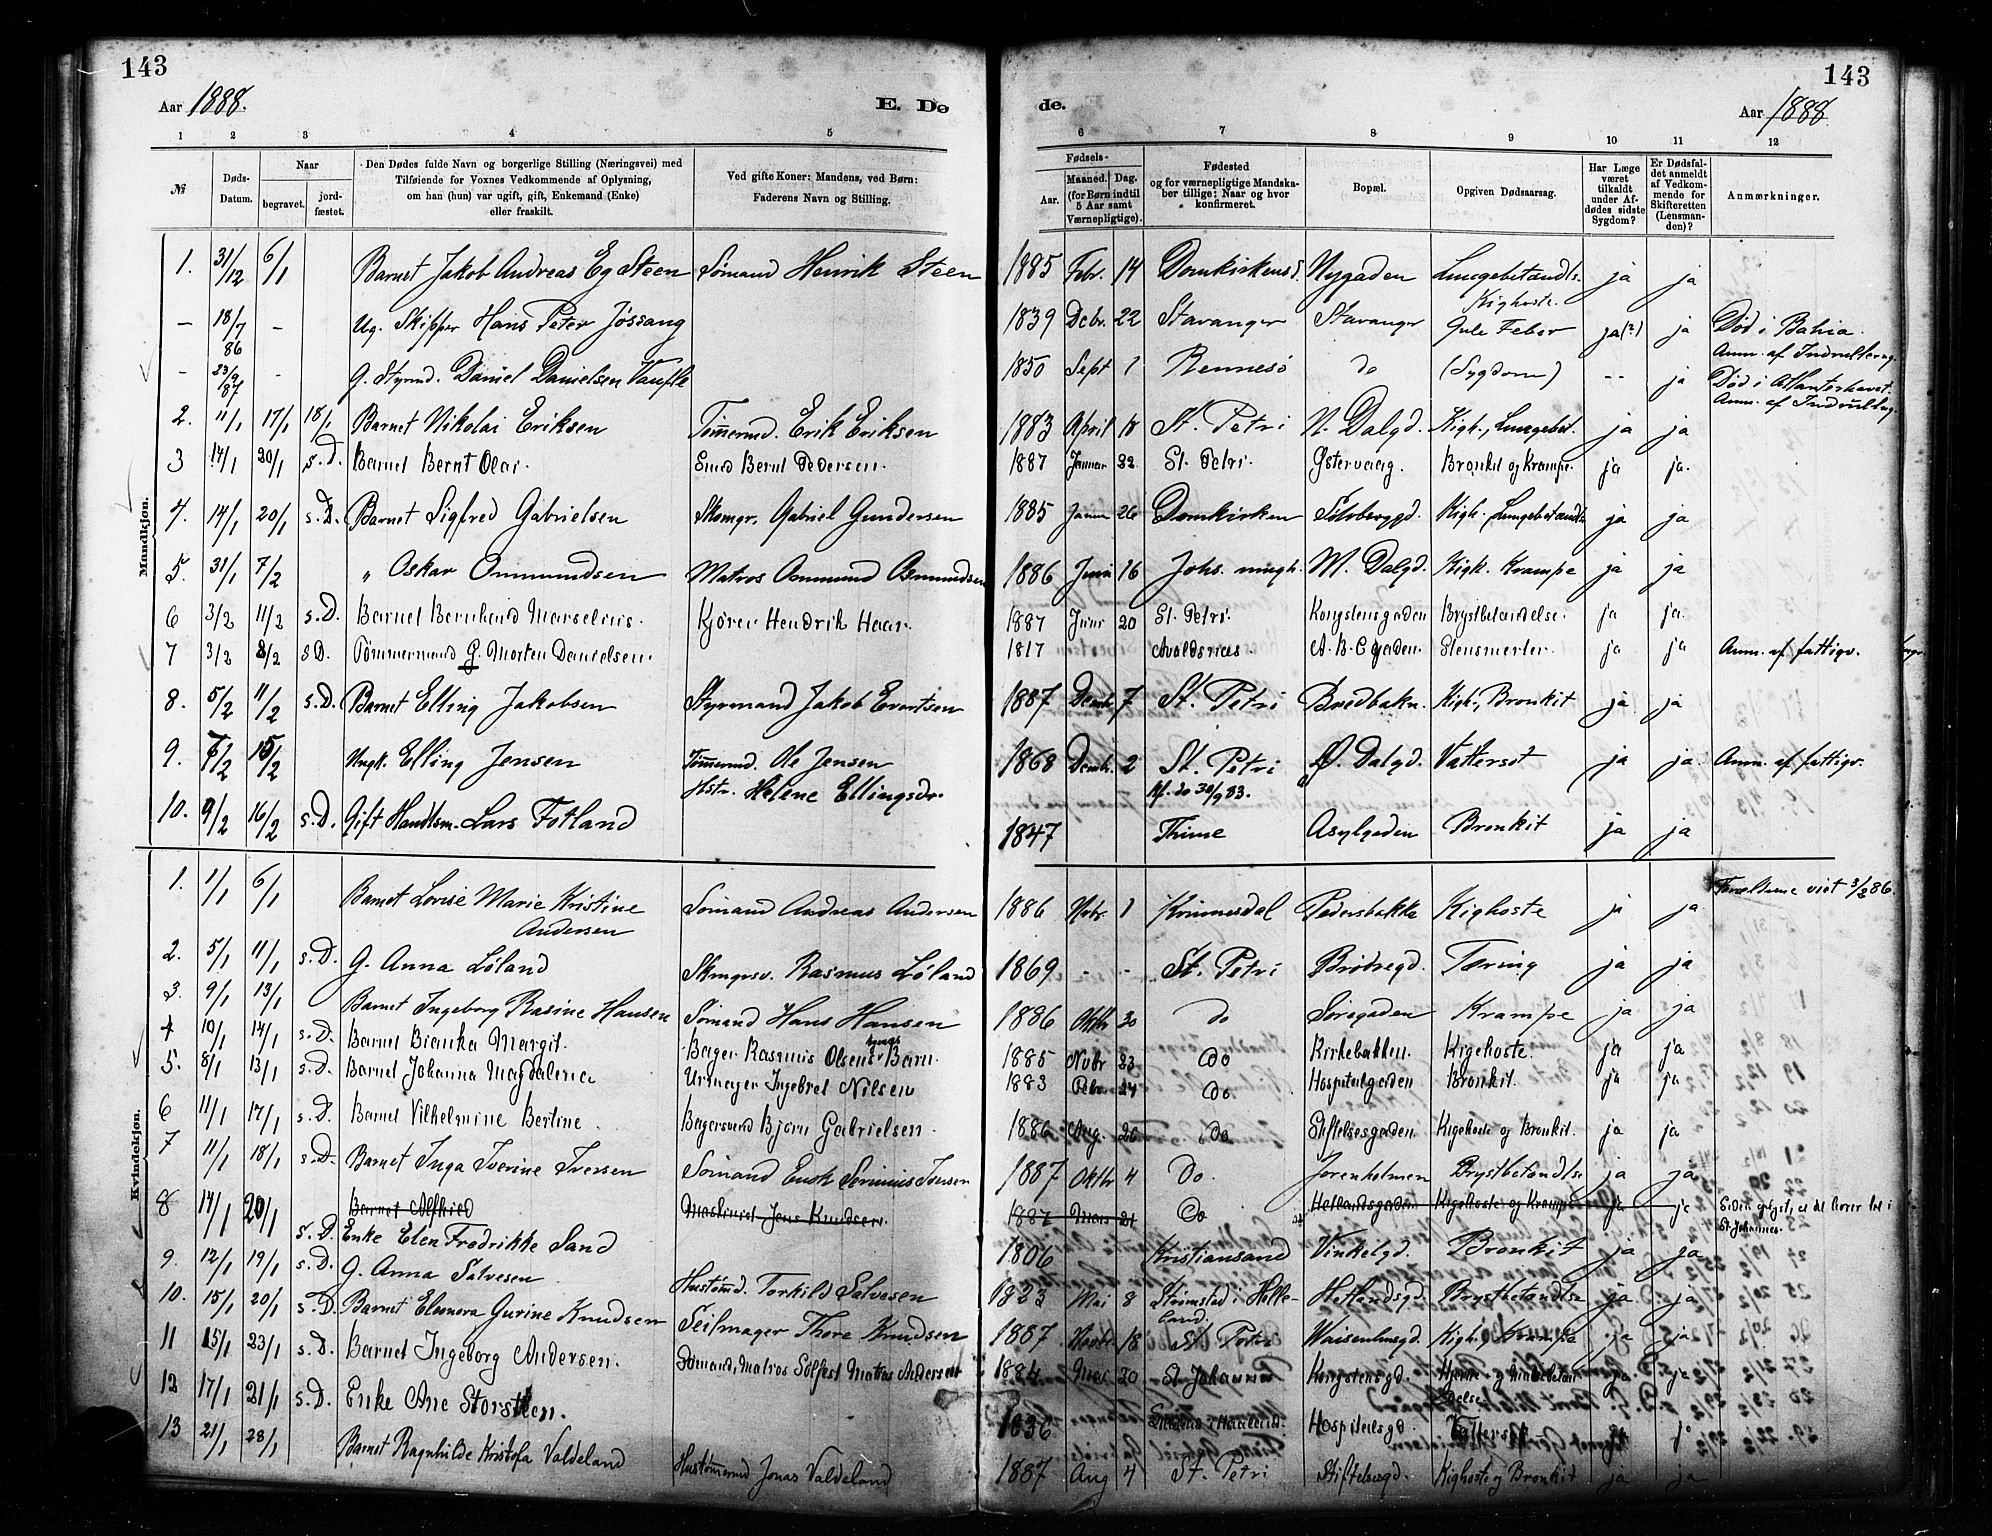 143
143
Aar 1888.
E. Dø
de.
Aar 1888.
1 2 3 4 5 6 7 8 9 10 11 12
№
Døds-Datum.
Naar
begravet.
jord-fæstet.
Den Dødes fulde Navn og borgerlige Stilling (Næringsvei) med
Tilføiende for Voxnes Vedkommende af Oplysning,
om han (hun) var ugift, gift, Enkemand (Enke)
eller fraskilt.
Ved gifte Koner: Mandens, ved Børn:
Faderens Navn og Stilling.
Fødsels-
Aar.
Maaned.
Dag.
(for Børn indtil
5 Aar samt
Værnepligtige).
Fødested
og for værnepligtige Mandska-
ber tillige: Naar og hvor
konfirmeret.
Bopæl.
Opgiven Dødsaarsag.
Har Læge
været
tilkaldt
under Af-
dødes sidste
Sygdom?
Er Dødsfal-
det anmeldt
af Vedkom-
mende for
Skifteretten
(Lensman-
den)?
Anmærkninger.
Mandkjøn.
1. 31/12 6/1 Barnet Jakob Andreas Eg Steen Sömand Henrik Steen 1885 Febr. 14 Domkirkens Nygaden Lungebetændls. Kighoste. ja ja
— 18/7 86 — Ug. Skipper Hans Peter Jössang 1839 Dcbr. 22 Stavanger Stavanger Gule Feber ja(?) ja Död i Bahia.
- 23/9 87 - G. Styrmd. Daniel Danielsen 1850 Sept 1 Rennesö do (Sygdom) -- ja Död i Atlanterhavet.
2. 11/1 17/1 18/1 Barnet Nikolai Eriksen Tömmermd. Erik Eriksen 1883 April 18 St. Petri N. Dalgd. Kigh., Lungebet. ja ja
3 14/1 20/1 s.D. Barnet Bernt Olai. Smed Bernt Pedersen. 1887 Januar 22 St. Petri. Østervaag. Bronkit og Krampe. ja ja.
4. 14/1 20/1 s.D. Barnet Sigfred Gabrielsen Skomgr. Gabriel Gundersen 1885 Janu 26 Domkirken Kigh. Lungebetændls ja ja
5. 31/1 7/2 „ Oskar Ommundsen Matros Ommund Ommundsen 1886 Juni 16 Johs. M. Dalgd. Kigh. Krampe ja ja
6 3/2 11/2 s.D. Barnet Bernhard Marselius. Kjörer Hendrik Haar. 1887 Juni 20 St. Petri. Kongstensgaden Brystbetændelse. ja ja.
7 3/2 8/2 s.D. Tömmermand G. Morten Danielsen. 1817 Avaldsnæs A.B.C gaden. Stensmerter. ja ja Anm. af fattigv.
8. 5/2 11/2 s.D. Barnet Elling Jakobsen Styrmand Jakob Evertsen 1887 Decmb. 7 St. Petri Bredbakn. Kigh., Bronkit ja ja
9. 7/2 15/2 Ungk. Elling Jensen Tömmermd. Ole Jensen Hstr. Helene Ellingsdr. 1868 Decmb. 2 St. Petri Ø. Dalgd. Vattersot ja ja Anm. af fattigv.
10. 9/2 16/2 s.D. Gift Handlsm. Lars Fotland 1847 Thime Asylgaden Bronkit ja ja
Kvindekjøn.
1. 1/1 6/1 Barnet Lovise Marie Kristine Andersen Sömand Andreas Andersen 1886 Novbr 1 Pedersbakke Kighoste ja ja Forældrene viet 3/2 86.
2. 5/1 11/1 s.D. G. Anna Löland Skmgrsv. Rasmus Löland 1869 - - St. Petri Brödregd. Tæring ja ja
3. 9/1 13/1 Barnet Ingeborg Rasine Hansen Sömand Hans Hansen 1886 Oktbr 30 do Söregaden Krampe ja ja
4 10/1 14/1 s.D. Barnet Bianka Margit. Bager Rasmus Olsens Barn. 1885 Novbr 23 do Kirkebakken. Kigehoste. ja ja
5. 8/1 13/1 s.D. Barnet Johanna Magdalena Urmager Ingebret Nilsen 1883 Febr 24 do Hospitalgaden Bronkit. ja ja
6 11/1 17/1 s.D. Barnet Vilhelmine Bertine. Bagersvend Björn Gabrielsen. 1886 Aug. 26 do Stiftelsesgaden. Kigehoste og Bronkit. ja ja
7 11/1 18/1 s.D. Barnet Inga Iverine Iversen Sömand Severinius Iversen 1887 Oktbr 4 Do. Jorenholmen Brystbetændlse ja ja
8 14/1 20/1 Barnet Alfhild Jens Knudsen. 1887 Mars 21 Do Hetlandsgaden Kigehoste og Krampe ja ja St. Johannes.
s.D. Enke Elen Fredrikke Sand 1806 Kristiansand Vinkelgd. Bronkit ja ja
9. 12/1 19/1 s.D. G. Anna Salvesen Hustömd. Torkild Salvesen 1823 Mai 8 i Helle-land. Hetlandsgd. Brystbetændlse ja ja
10. 15/1 20/1 s.D. Barnet Eleonora Gurine Knudsen Seilmager Thore Knudsen 1887 Novbr 18 St. Petri Waisenhusgd. Kigh. Krampe ja ja
11 15/1 23/1 s.D. Barnet Ingeborg Andersen. Matros Andersen 1884 Mai 20 St. Johannes Kongstensgd. Hjerne- ja ja
12 17/1 21/1 s.D. Enke Ane Storsteen. 1836 Hospitalsgd. Vattersot ja
13 21/1 28/1 Barnet Ragnhilde Kristofa Valdeland Hustömmermd Jonas Valdeland 1887 Aug 4 St. Petri Stiftelsesgd. Kighoste og Bronkit ja ja